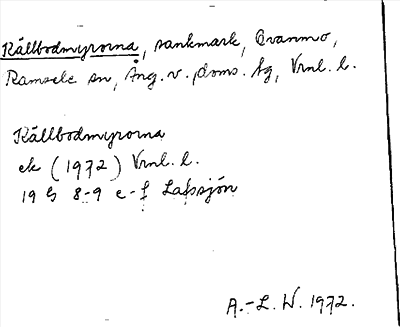 Källbodmyrorna, sankmark, Kvanmo,
Ramsele sn, Ång. v. doms. tg, Vrnl. l.
Källbodmyrorna
ek (1972) Vrnl. l.
19 G 8-9 e-f Lafssjön
A.-L. W. 1972.